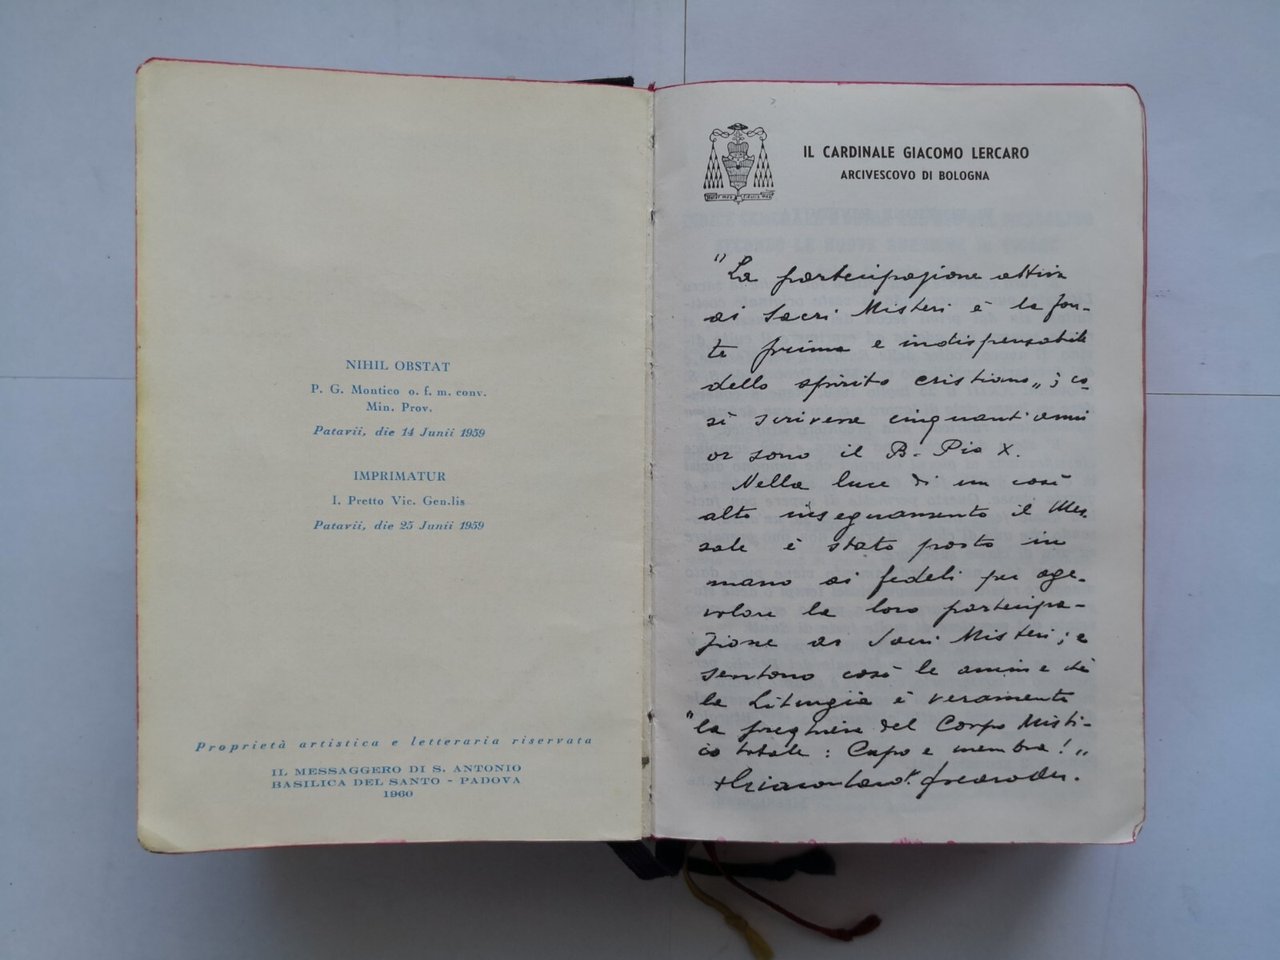 NIHIL OBSTAT
P. G. Montico o. f. m. conv.
Min. Prov.
Patavii, die 14 Junii 1959
IMPRIMATUR
I. Pretto Vic. Gen.lis
Patavii, die 25 Junii 1959
Proprietà artistica e letteraria riservata
IL MESSAGGERO DI S. ANTONIO
BASILICA DEL SANTO - PADOVA
1960
IL CARDINALE GIACOMO LERCARO
ARCIVESCOVO DI BOLOGNA
"La partecipazione attiva
ai Sacri Misteri è la fon-
te prima e indispensabile
dello spirito cristiano„; co-
sì scriveva cinquant'anni
or sono il B. Pio X.
Nella luce di un così
alto insegnamento il Mes-
sale è stato posto in
mano ai fedeli per age-
volare la loro partecipa-
zione ai Sacri Misteri; e
sentono così le anime che
la Liturgia è veramente
"la preghiera del Corpo Misti-
co totale: Capo e membra!„